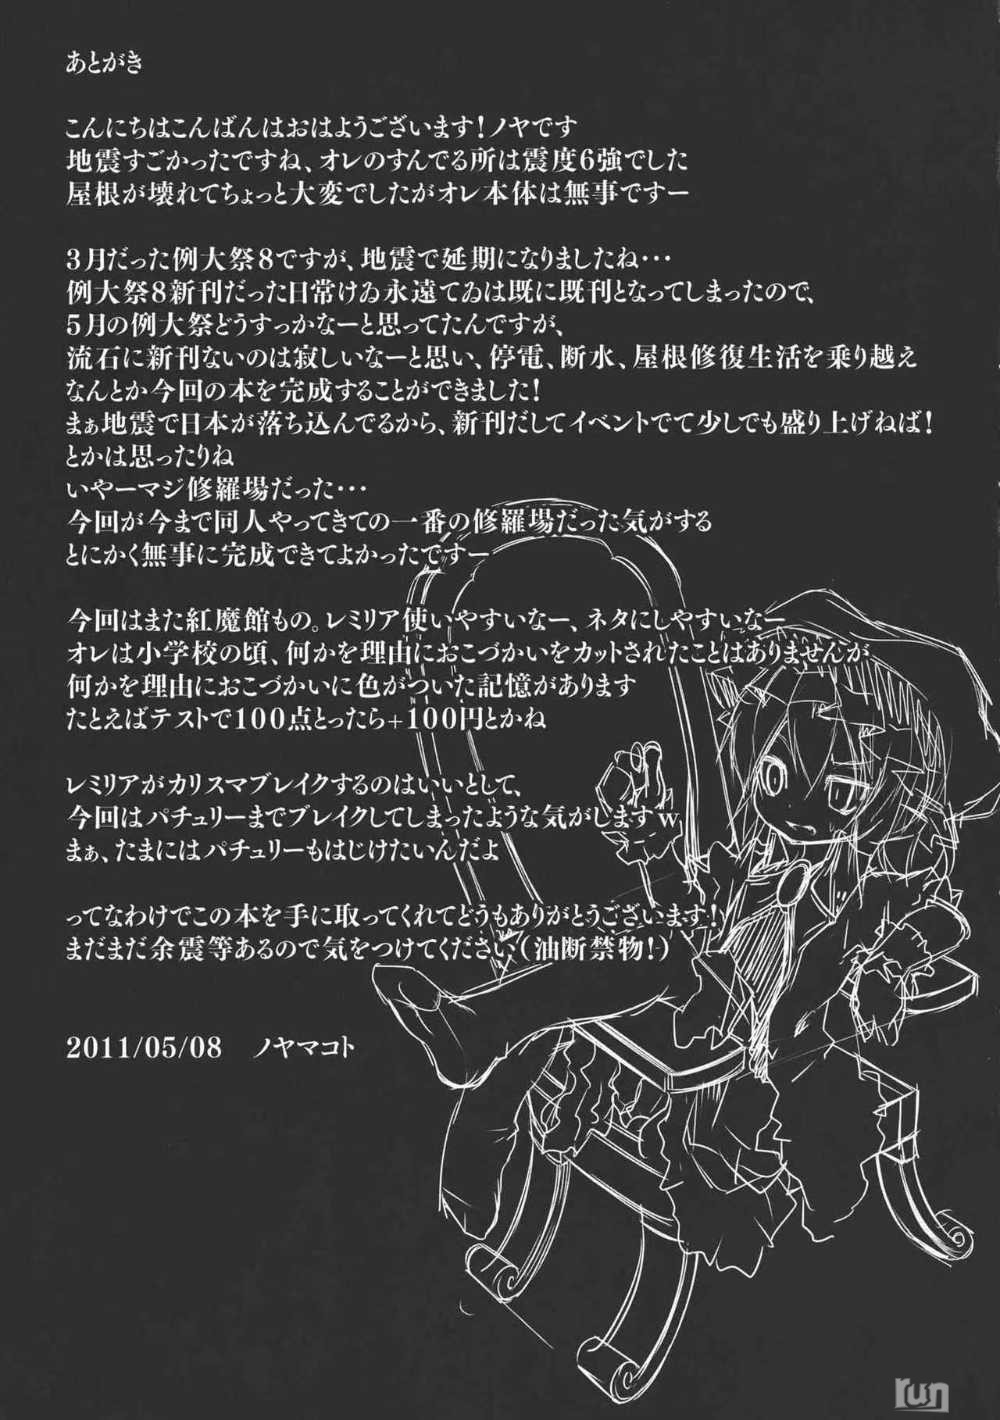 あとがき
こんにちはこんばんはおはようございます！ノヤです
地震すごかったですね、オレのすんでる所は震度6強でした
屋根が壊れてちょっと大変でしたがオレ本体は無事ですー
3月だった例大祭8ですが、地震で延期になりましたね・・・
例大祭8新刊だった日常けゐ永遠てゐは既に既刊となってしまったので、
5月の例大祭どうすっかなーと思ってたんですが、
流石に新刊ないのは寂しいなーと思い、停電、断水、屋根修復生活を乗り越え
なんとか今回の本を完成することができました！
まぁ地震で日本が落ち込んでるから、新刊だしてイベントでて少しでも盛り上げねば！
とかは思ったりね
いやーマジ修羅場だった・・・
今回が今まで同人やってきての一番の修羅場だった気がする
とにかく無事に完成できてよかったですー
今回はまた紅魔館もの。レミリア使いやすいなー、ネタにしやすいなー
オレは小学校の頃、何かを理由におこづかいをカットされたことはありませんが
何かを理由におこづかいに色がついた記憶があります
たとえばテストで100点とったら+100円とかね
レミリアがカリスマブレイクするのはいいとして、
今回はパチュリーまでブレイクしてしまったような気がしますw
まぁ、たまにはパチュリーもはじけたいんだよ
ってなわけでこの本を手に取ってくれてどうもありがとうございます！
まだまだ余震等あるので気をつけてください（油断禁物！）
2011/05/08　ノヤマコト
run